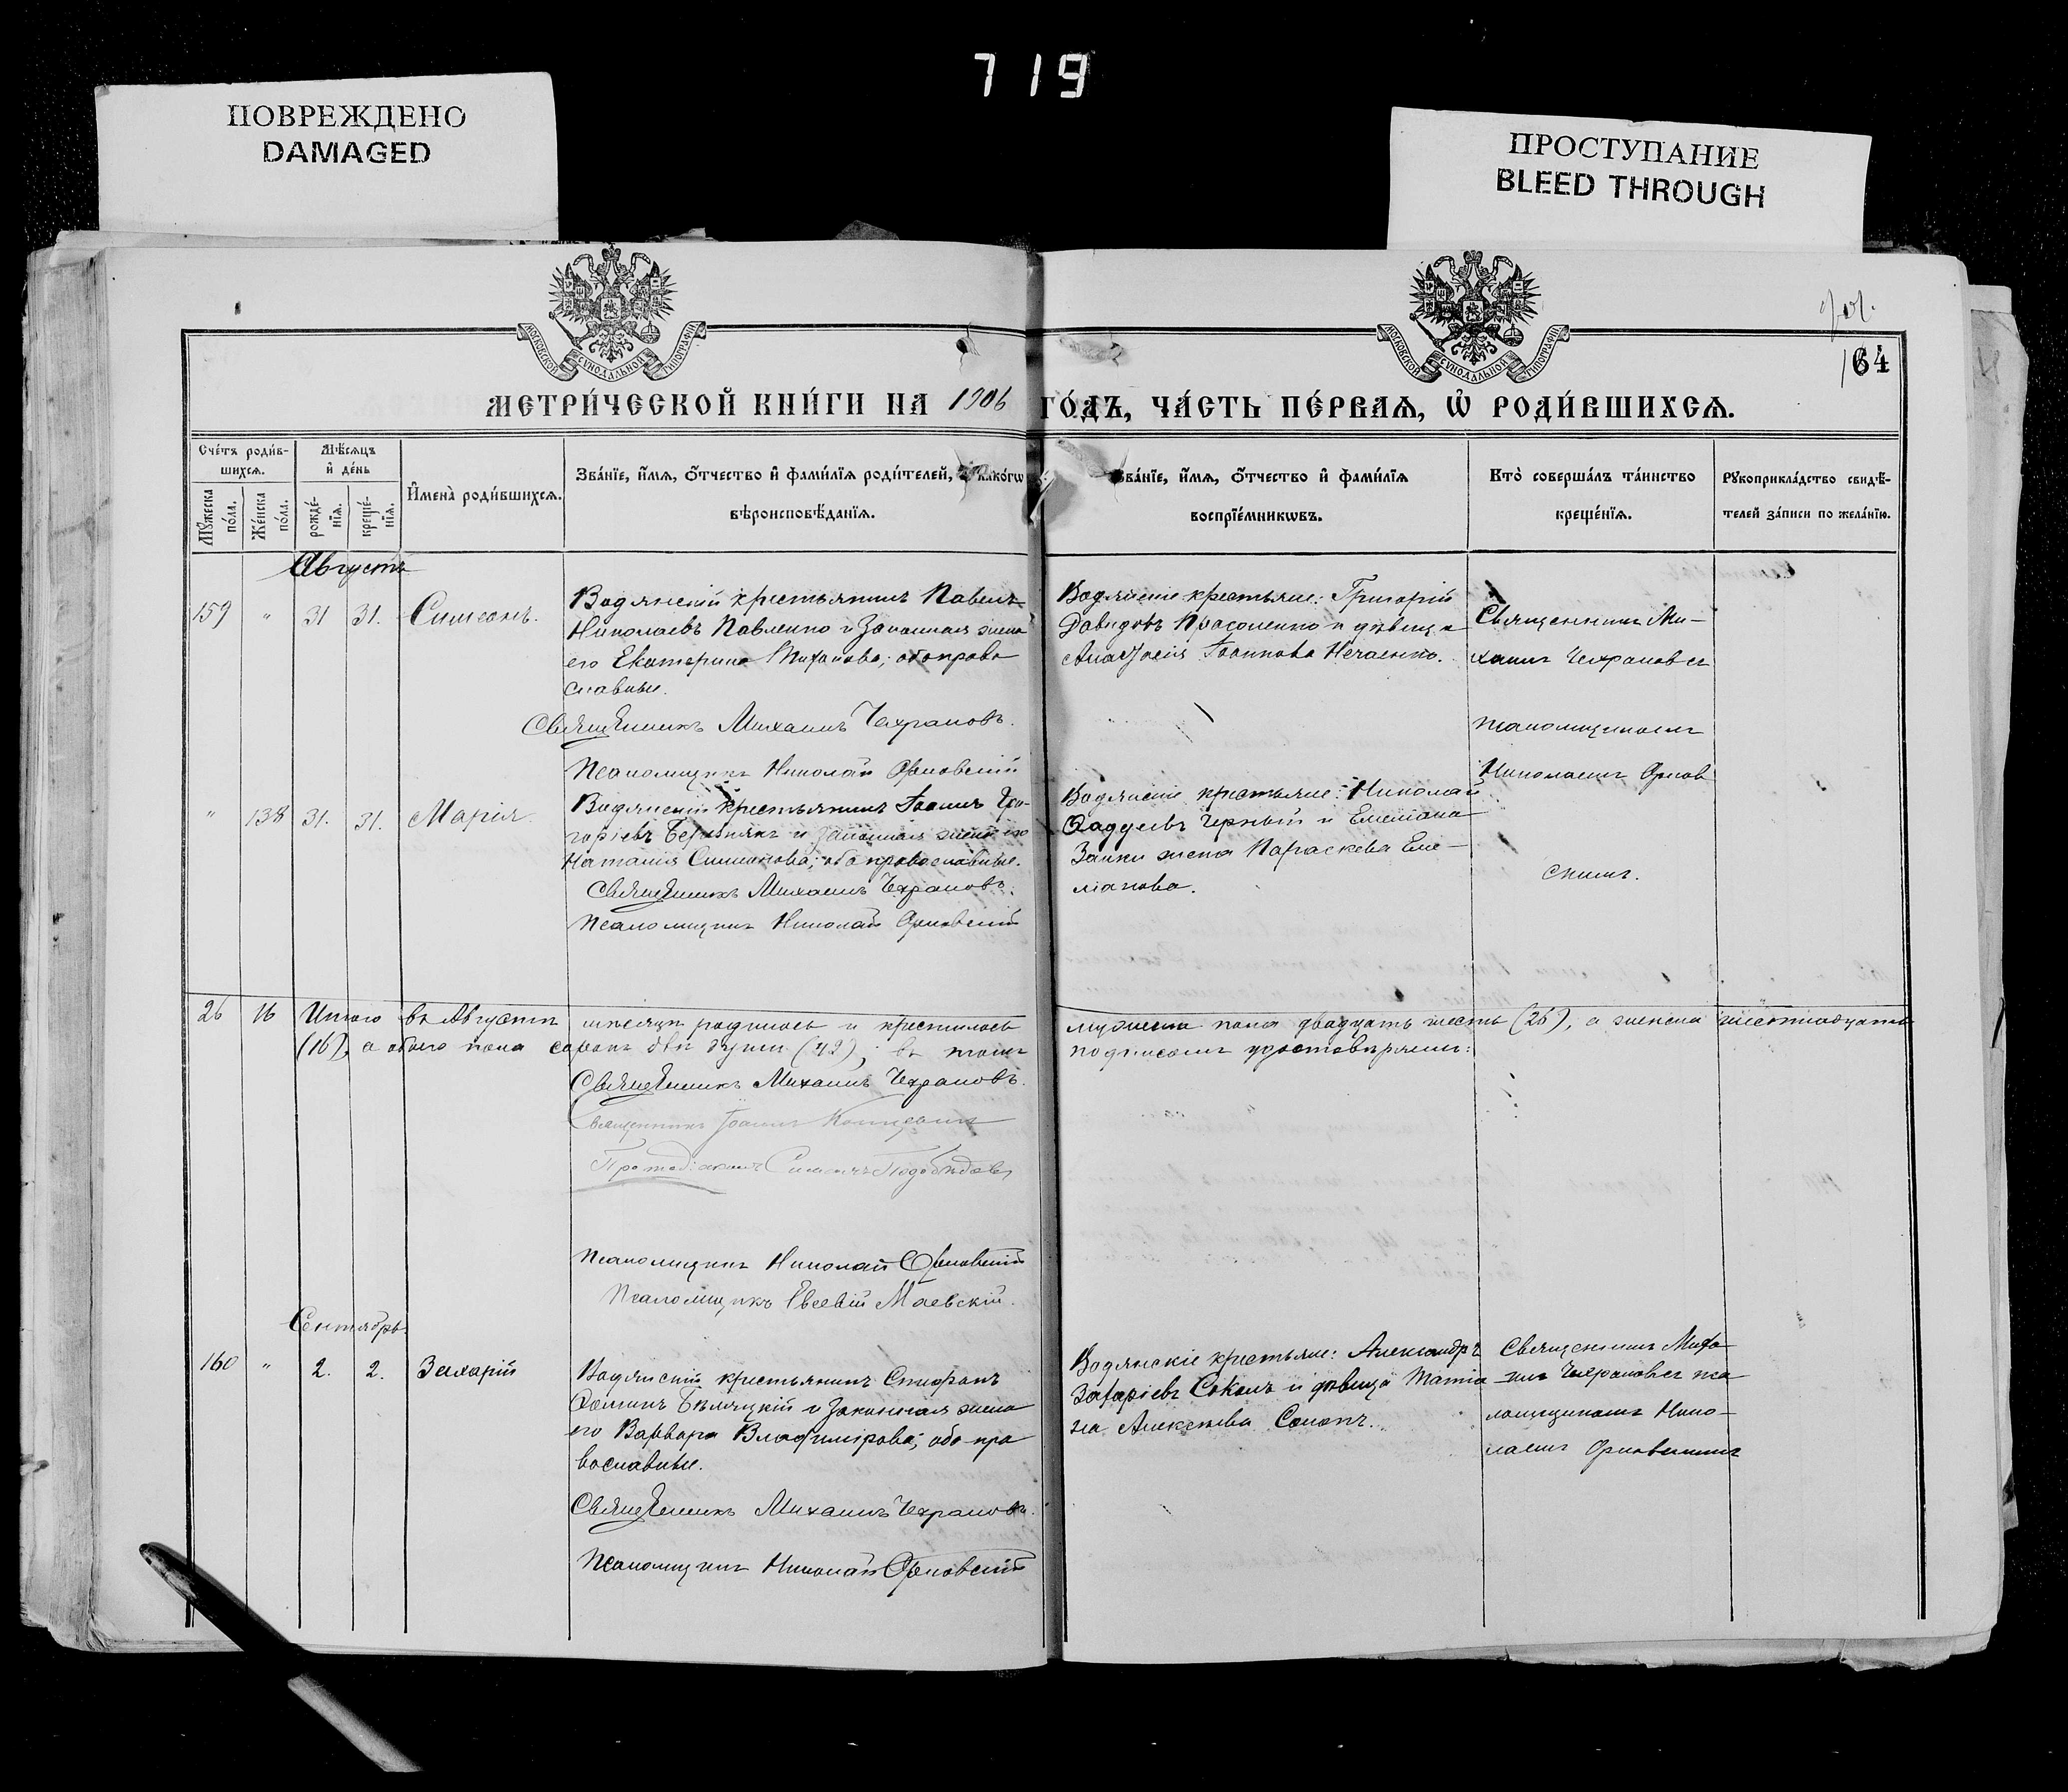 719
ПОВРЕЖДЕНО
DAMAGED
ПРОСТУПАНИЕ
BLEED THROUGH
МОСКОВСКОЙ СѴНОДАЛЬНОЙ ТИПОГРАФІИ
МОСКОВСКОЙ СѴНОДАЛЬНОЙ ТИПОГРАФІИ
164
МЕТРИ́ЧЕСКОЙ КНИ́ГИ НА 1906 ГО́ДЪ, ЧА́СТЬ ПЕ́РВАѦ, Ѡ҆ РОДИ́ВШИХСѦ.
Сче́тъ роди́в-
шихсѧ.
Мꙋ́жеска по́ла.
Же́нска по́ла.
Мѣ́сѧцъ и҆ де́нь
рожде́-нїѧ.
креще́-нїѧ.
И҆мена̀ роди́вшихсѧ.
Зва́нїе, и҆́мѧ, ѻ҆́тчество и҆ фами́лїѧ роди́телей, и҆ како́гѡ
вѣроисповѣ́данїѧ.
Зва́нїе, и҆́мѧ, ѻ҆́тчество и҆ фами́лїѧ
воспрїе́мникѡвъ.
Кто̀ соверша́лъ та́инство
креще́нїѧ.
Рꙋкоприкла́дство свидѣ́-
телей за́писи по жела́нїю.
Августъ
159 " 31 31. Симеонъ.
Водянскій крестьянинъ Павелъ
Николаевъ Павленко и законная жена
его Екатерина Тихонова; оба право
славные.
Священникъ Михаилъ Чехрановъ.
Псаломщикъ Николай Орловскій
Водянскіе крестьяне: Григорій
Давидовъ Прасоленко и дѣвица
Анастасія Іоаннова Нечаенко.
Священникъ Ми-
хаилъ Чехрановъ съ
псаломщикомъ
Николаемъ Орлов
скимъ.
" 138 31. 31. Марія.
Водянскій крестьянинъ Іоаннъ Гри-
горіевъ и законная жена его
Наталія Симеонова; оба православные.
Священникъ Михаилъ Чехрановъ.
Псаломщикъ Николай Орловскій
Водянскіе крестьяне: Николай
Фаддеевъ Черный и Емеліана
Заики жена Параскева Еме-
ліанова.
26 16 Итого въ Августѣ мѣсяцѣ родилось и крестилось мужеска пола двадцать шесть (26), а женска шестнадцать
(16), а обоего пола сорокъ двѣ души (42); въ томъ подписомъ удостовѣряемъ:
Священникъ Михаилъ Чехрановъ.
Священникъ Іоаннъ
Протодіаконъ Симеонъ Подобѣдовъ
Псаломщикъ Николай Орловскій
Псаломщикъ Евсевій Маевскій.
Сентябрь.
160 " 2. 2. Захарій
Водянскій крестьянинъ Стефанъ
Фоминъ Бѣляцкій и законная жена
его Варвара Владимірова; оба пра
вославные.
Священникъ Михаилъ Чехрановъ.
Псаломщикъ Николай Орловскій
Водянскіе крестьяне: Александръ
Захаріевъ Соколъ и дѣвица Татіа
на Алексѣева Соколъ.
Священникъ Миха-
илъ Чехрановъ съ пса
ломщикомъ Нико-
лаемъ Орловскимъ